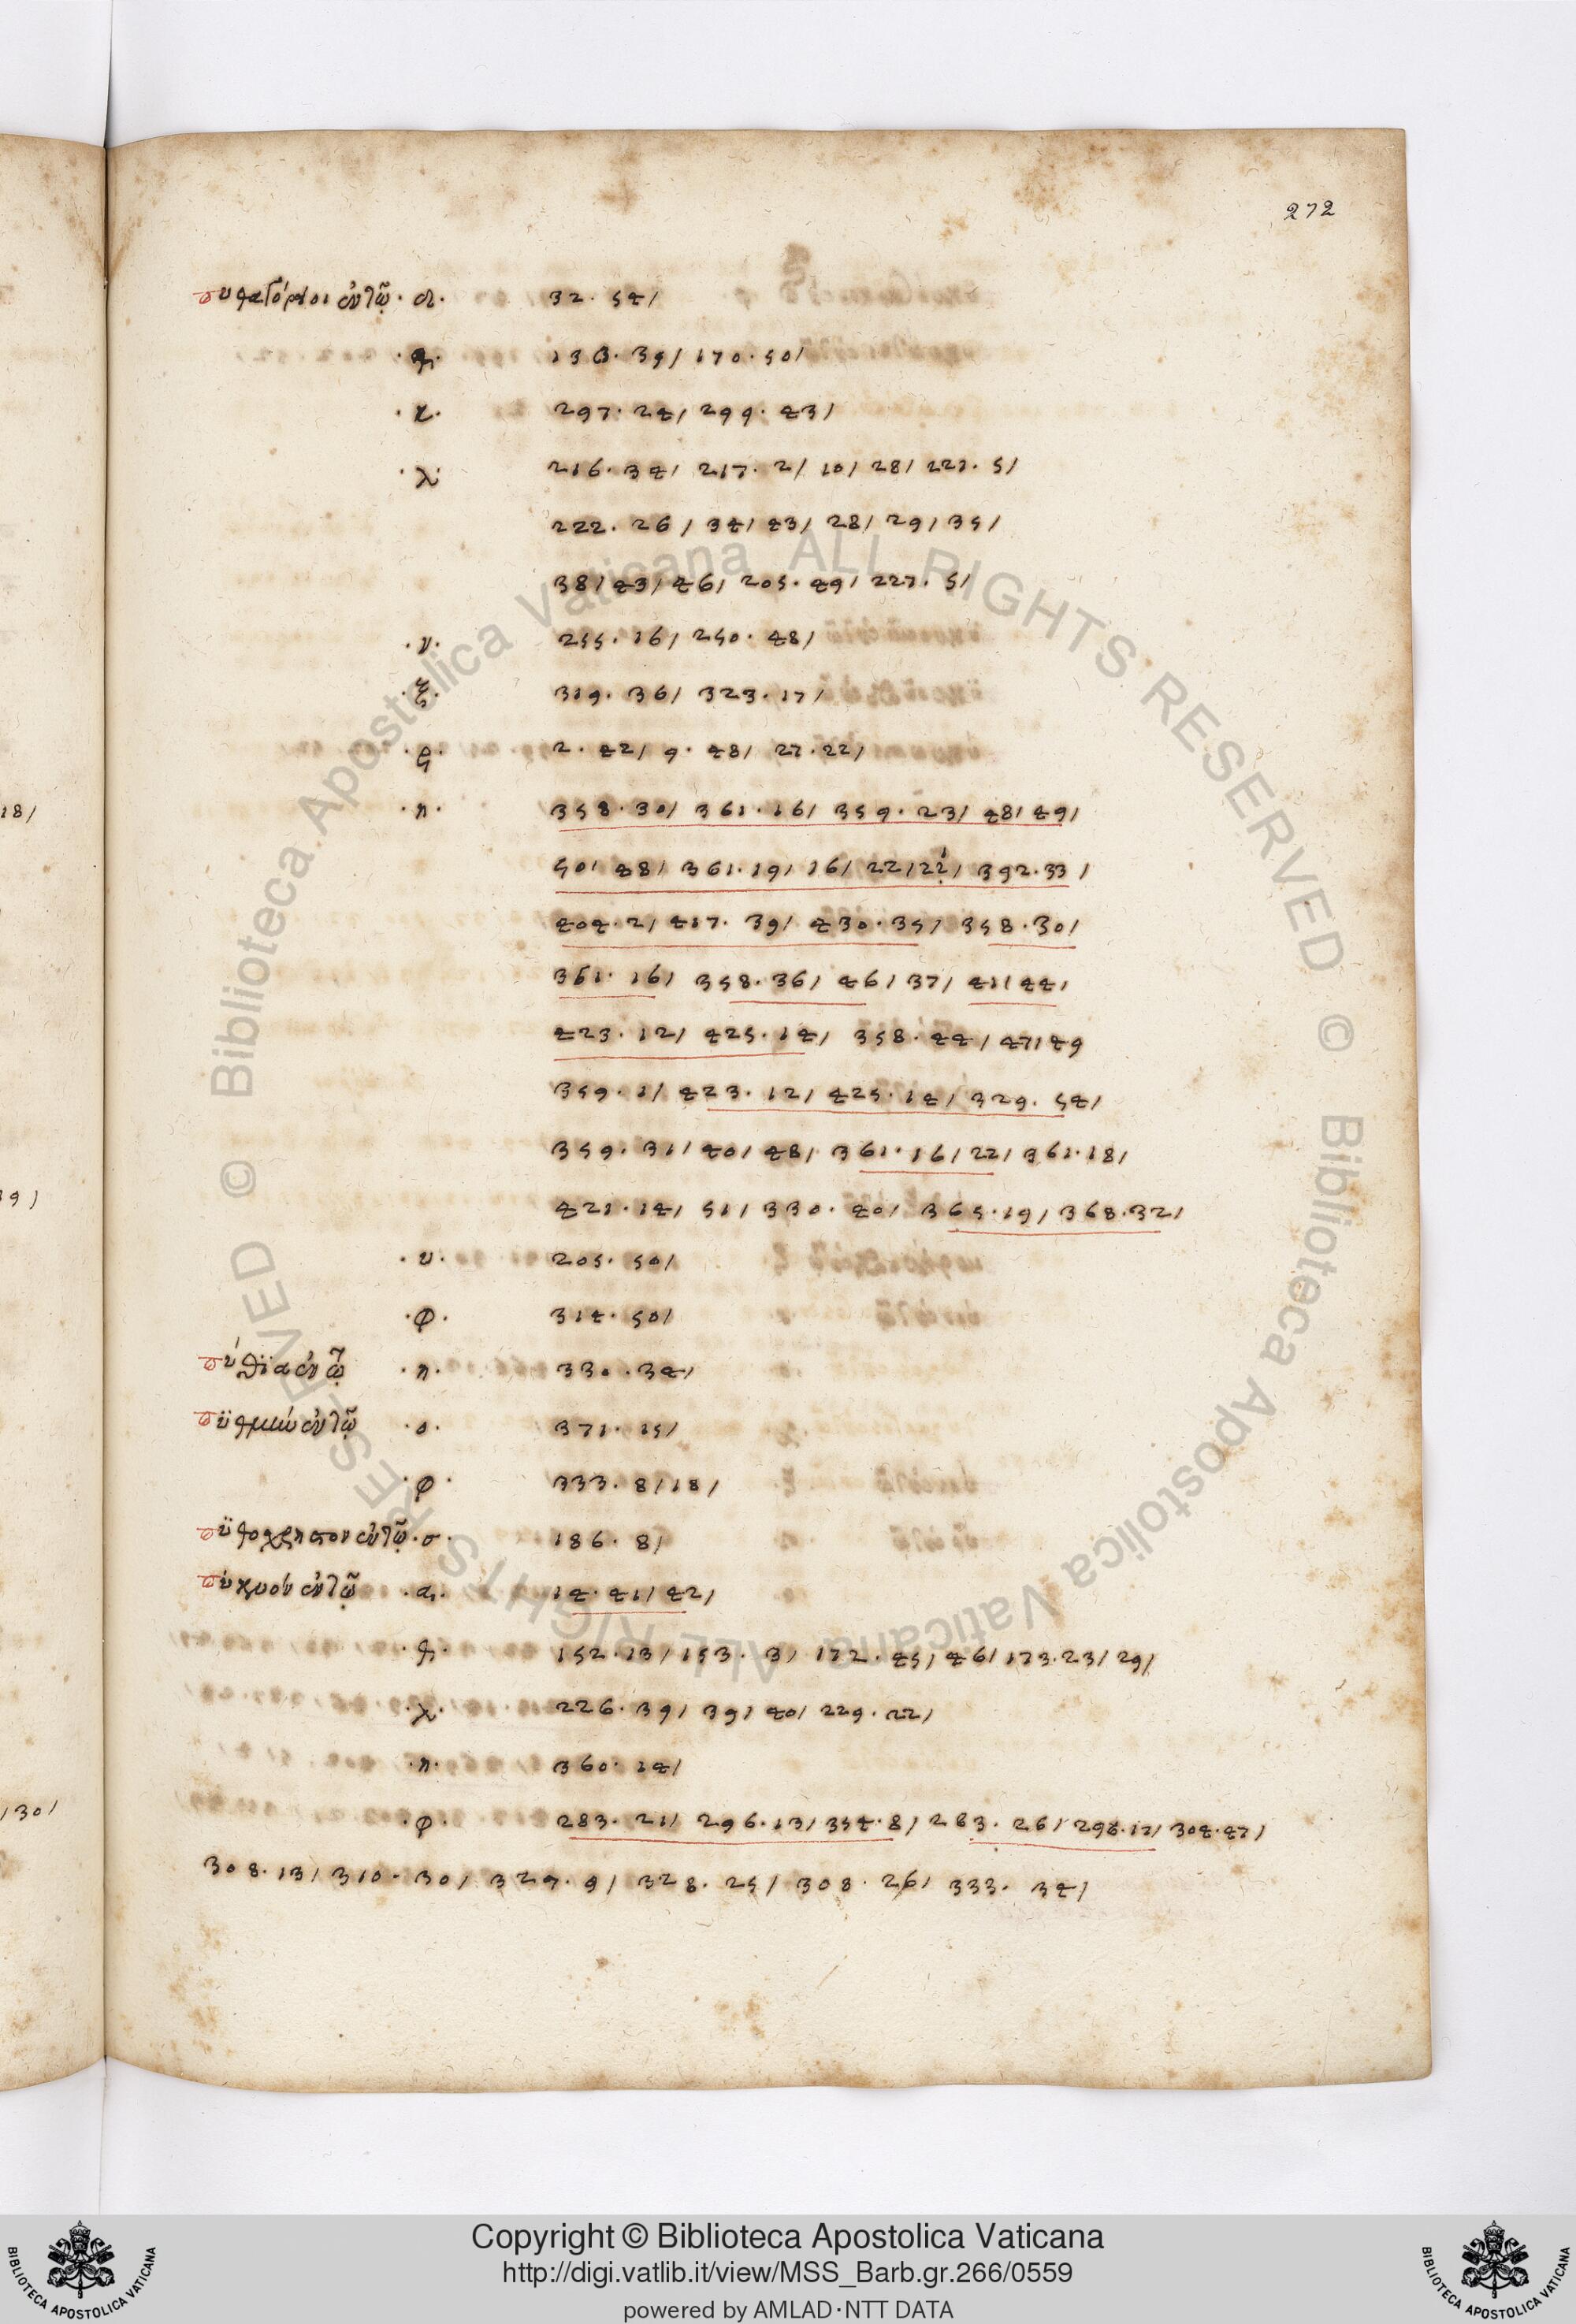 272
πυθαγόριοι ἐν τῷ · α · 32 · 54 /
· β · 136 · 39 / 170 · 50 /
· κ · 297 · 24 / 299 · 43 /
· λ · 216 · 34 / 217 · 2 / 10 / 28 / 221 · 5 /
222 · 26 / 34 / 43 / 28 / 29 / 35 /
38 / 43 / 46 / 205 · 49 / 227 · 5 /
· ν · 255 · 16 / 250 · 48 /
· ξ · 319 · 36 / 323 · 17 /
2 · 42 / 9 · 48 / 27 · 22 /
· π · 358 · 30 / 361 · 16 / 359 · 23 / 48 / 49 /
50 / 48 / 361 · 19 / 16 / 22 / 22 / 392 · 33 /
404 · 2 / 417 · 39 / 430 · 35 / 358 · 30 /
361 · 16 / 358 · 36 / 46 / 37 / 41 / 44 /
423 · 12 / 425 · 14 / 358 · 44 / 47 / 49
359 · 1 / 423 · 12 / 425 · 14 / 329 · 54 /
359 · 31 / 40 / 48 / 361 · 16 / 22 / 361 · 18 /
421 · 14 / 51 / 330 · 40 / 365 · 19 / 368 · 32 /
· υ · 205 · 50 /
· φ · 314 · 50 /
πύθια ἐν τῷ · π · 330 · 34 /
πυθμὴν ἐν τῷ · ο · 371 · 15 /
· φ · 333 · 8 / 18 /
πυθόχρηστον ἐν τῷ · σ · 186 · 8 /
πυκνὸν ἐν τῷ · α · 14 · 41 / 42 /
· β · 152 · 13 / 153 · 3 / 172 · 45 / 46 / 173 · 23 / 29 /
· λ · 226 · 39 / 39 / 40 / 229 · 22 /
· π · 360 · 14 /
· φ · 283 · 21 / 296 · 13 / 354 · 8 / 283 · 26 / 304 · 47 /
308 · 13 / 310 · 30 / 327 · 9 / 328 · 25 / 308 · 26 / 333 · 34 /
18 /
19 /
/ 30 /
Copyright © Biblioteca Apostolica Vaticana
http://digi.vatlib.it/view/MSS_Barb.gr.266/0559
powered by AMLAD·NTT DATA
BIBLIOTECA APOSTOLICA VATICANA
BIBLIOTECA APOSTOLICA VATICANA
© Biblioteca Apostolica Vaticana ALL RIGHTS RESERVED
© Biblioteca Apostolica Vaticana ALL RIGHTS RESERVED